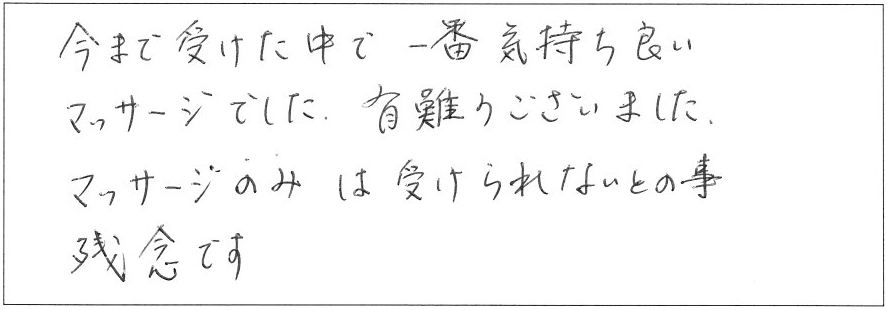 今まで受けた中で一番気持ち良い
マッサージでした.有難うございました.
マッサージのみは受けられないとの事
残念です